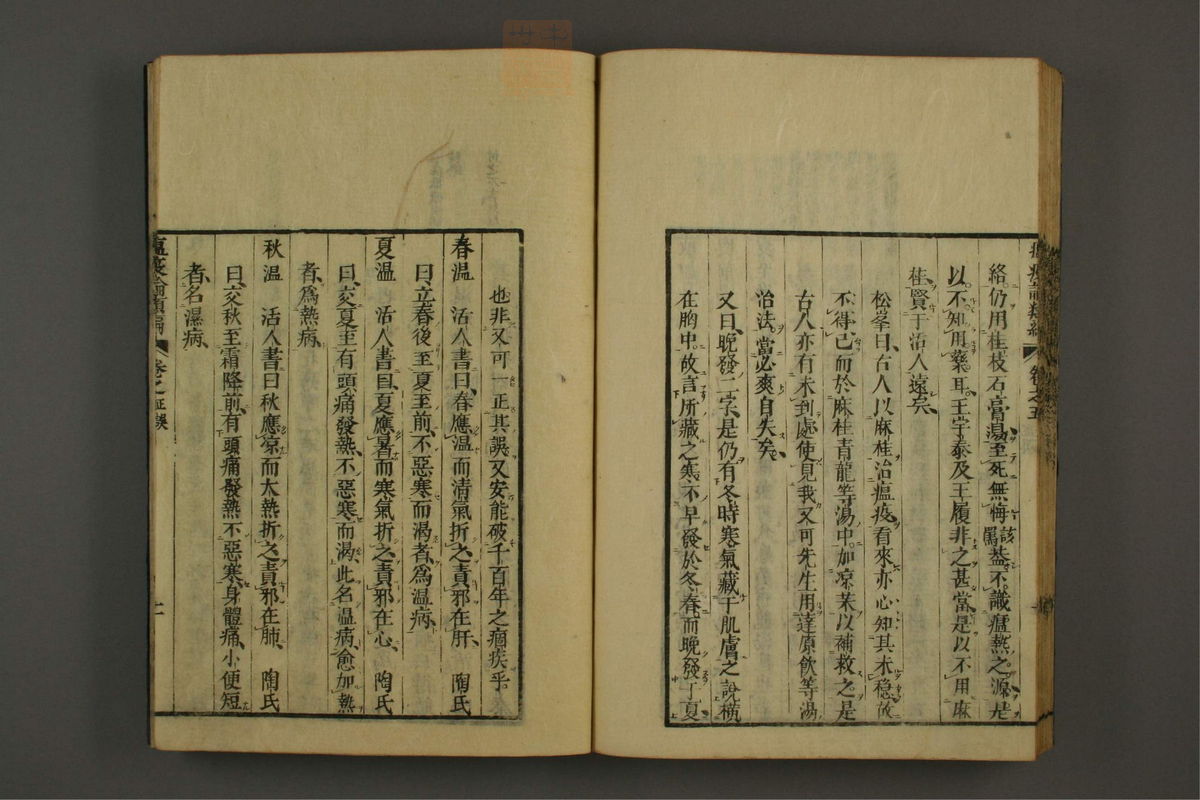 絡仍用桂枝石膏湯至死無悔該罵蓋不識瘟熱之源是
以不知用藥耳王宇泰及王履非之甚當是以不用麻
桂賢于活人遠矣
松峯曰古人以麻桂治瘟疫看來亦心知其未穩故
不得已而於麻桂青龍等湯中加凉藥以補救之是
古人亦有未到處使見我又可先生用達原飲等湯
治法當必爽自失矣
又曰晚發二字是仍有冬時寒氣藏于肌膚之說橫
在胸中故言所藏之寒不早發於冬春而晚發于夏
瘟疫論類編 卷之五
也非又可一正其誤又安能破千百年之痼疾乎
春温 活人書曰春應温而清氣折之責邪在肝 陶氏
曰立春後至夏至前不惡寒而渴者爲温病
夏温 活人書曰夏應暑而寒氣折之責邪在心 陶氏
曰交夏至有頭痛發熱不惡寒而渴此名温病愈加熱
者爲熱病
秋温 活人書曰秋應凉而大熱折之責邪在肺 陶氏
曰交秋至霜降前有頭痛發熱不惡寒身體痛小便短
者名濕病
瘟疫論類編 卷之五 正誤